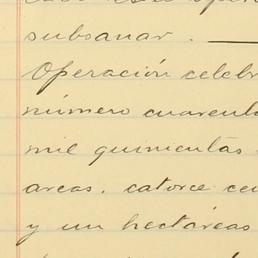 subsanar.
Operación celebr
número cuarenta
mil quinientas
areas, catorce ce
y un hectáreas